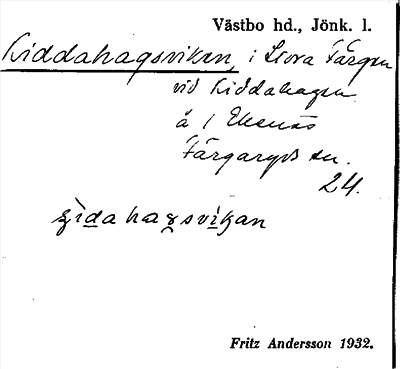 Västbo hd., Jönk. l.
Kiddahagsviken, i Stora Färgen
vid Kiddahagen
å 1 Ekenäs
Färgaryds sn.
24.
Fritz Andersson 1932.